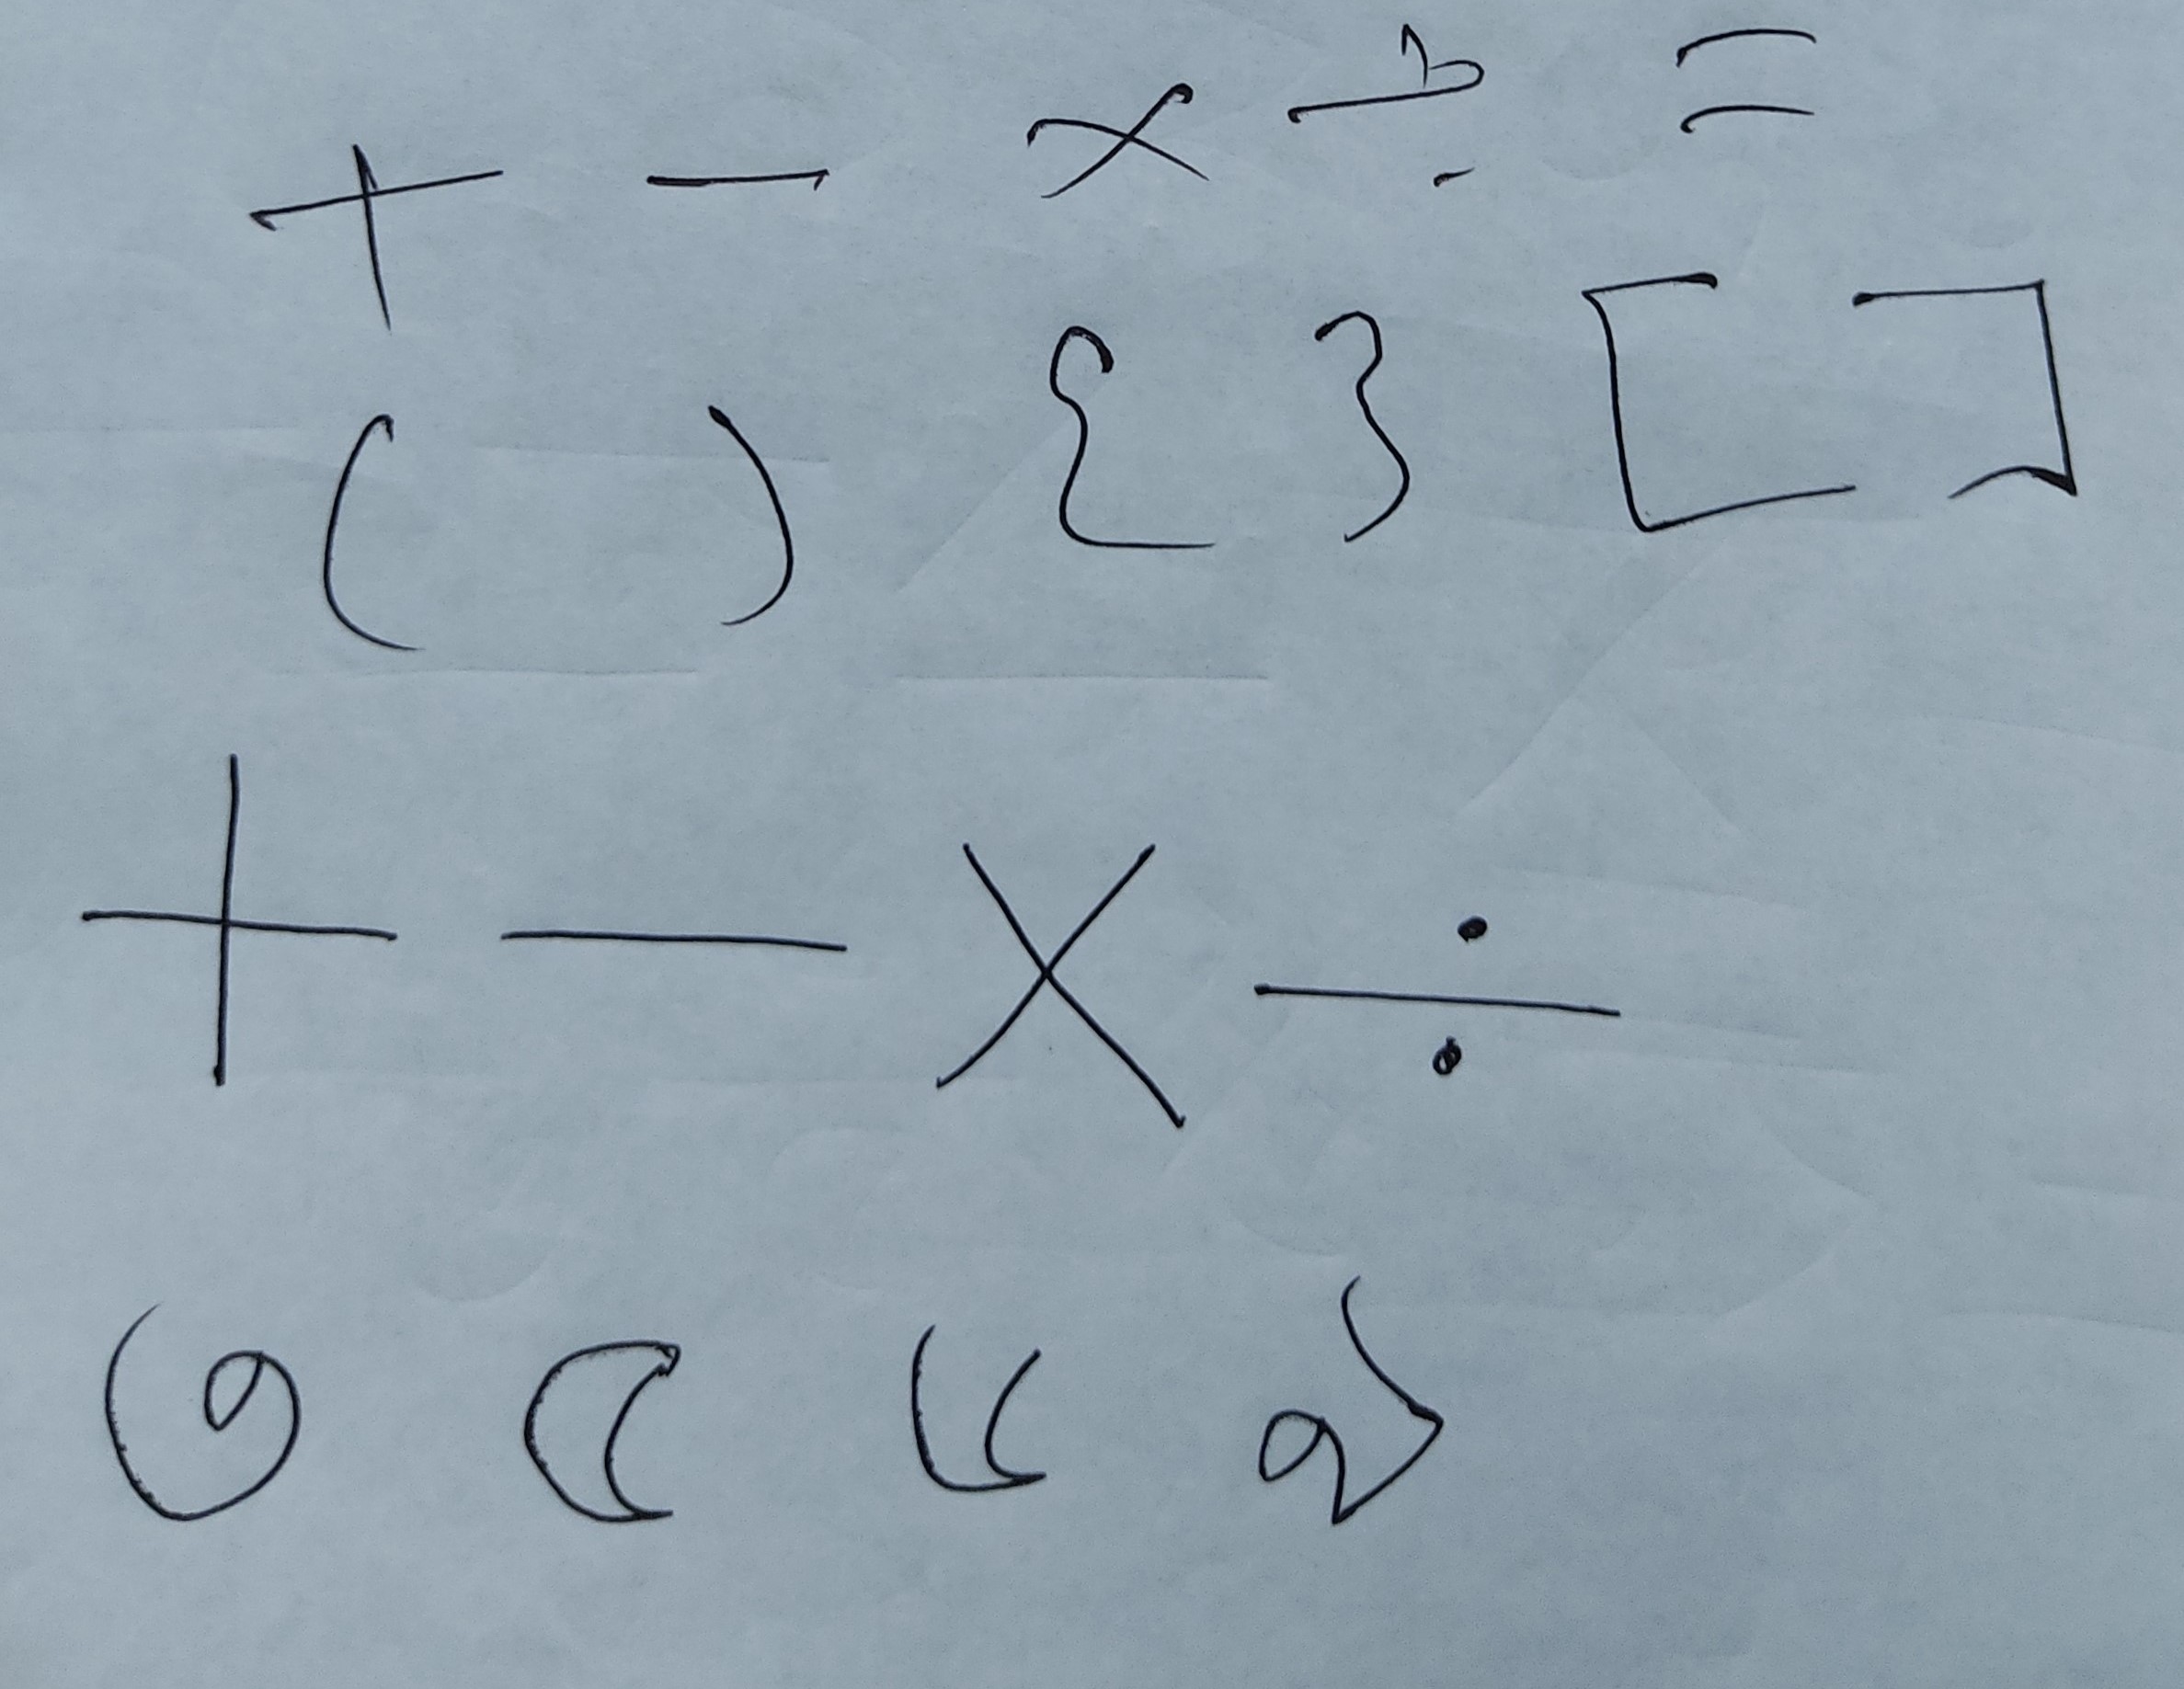 + − × ÷ =
( ) { } [ ]
+ − × ÷